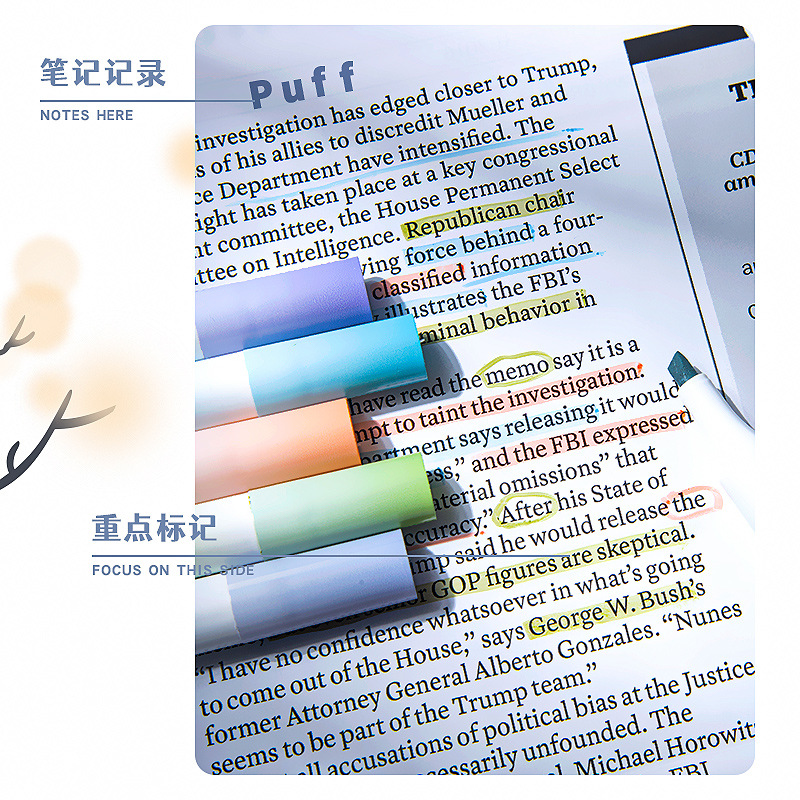 笔记记录
NOTES HERE
Puff
investigation has edged closer to Trump,
s of his allies to discredit Mueller and
ce Department have intensified. The
ight has taken place at a key congressional
nt committee, the House Permanent Select
ttee on Intelligence. Republican chair
ying force behind a four-
classified information
illustrates the FBI's
minal behavior in
have read the memo say it is a
mpt to taint the investigation.
partment says releasing it would
ess," and the FBI expressed
aterial omissions" that
ccuracy." After his State of
mp said he would release the
GOP figures are skeptical.
"I have no confidence whatsoever in what's going
to come out of the House," says George W. Bush's
former Attorney General Alberto Gonzales. "Nunes
seems to be part of the Trump team."
all accusations of political bias at the Justice
cessarily unfounded. The
Michael Horowitz
FBI
CD
am
重点标记
FOCUS ON THIS SIDE